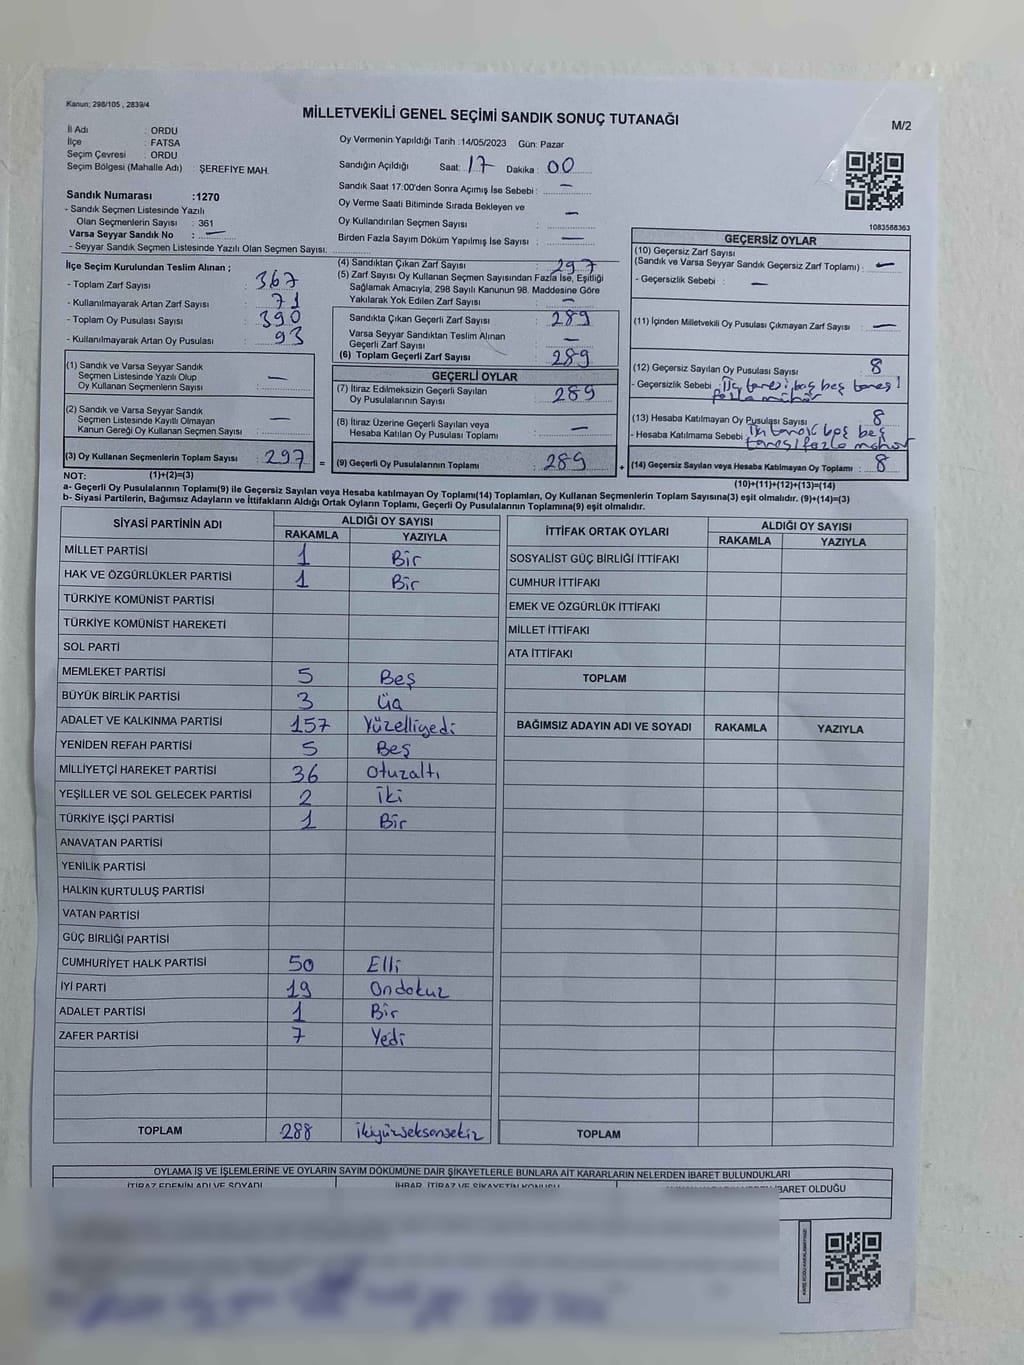 Kanun: 298/105 , 2839/4
MİLLETVEKİLİ GENEL SEÇİMİ SANDIK SONUÇ TUTANAĞI
M/2
İl Adı : ORDU
İlçe : FATSA
Seçim Çevresi : ORDU
Seçim Bölgesi (Mahalle Adı) : ŞEREFİYE MAH.
Oy Vermenin Yapıldığı Tarih :14/05/2023 Gün: Pazar
Sandığın Açıldığı Saat: 17 Dakika : 00
Sandık Saat 17:00'den Sonra Açımış İse Sebebi : —
Oy Verme Saati Bitiminde Sırada Bekleyen ve
Oy Kullandırılan Seçmen Sayısı : —
Birden Fazla Sayım Döküm Yapılmış İse Sayısı : —
Sandık Numarası :1270
- Sandık Seçmen Listesinde Yazılı
Olan Seçmenlerin Sayısı : 361
Varsa Seyyar Sandık No : —
- Seyyar Sandık Seçmen Listesinde Yazılı Olan Seçmen Sayısı.
1083588363
İlçe Seçim Kurulundan Teslim Alınan ;
- Toplam Zarf Sayısı : 367
- Kullanılmayarak Artan Zarf Sayısı : 71
- Toplam Oy Pusulası Sayısı : 390
- Kullanılmayarak Artan Oy Pusulası : 93
(1) Sandık ve Varsa Seyyar Sandık
Seçmen Listesinde Yazılı Olup
Oy Kullanan Seçmenlerin Sayısı : —
(2) Sandık ve Varsa Seyyar Sandık
Seçmen Listesinde Kayıtlı Olmayan
Kanun Gereği Oy Kullanan Seçmen Sayısı : —
(3) Oy Kullanan Seçmenlerin Toplam Sayısı : 297 =
(1)+(2)=(3)
(4) Sandıktan Çıkan Zarf Sayısı : 297
(5) Zarf Sayısı Oy Kullanan Seçmen Sayısından Fazla İse, Eşitliği
Sağlamak Amacıyla, 298 Sayılı Kanunun 98. Maddesine Göre
Yakılarak Yok Edilen Zarf Sayısı : —
Sandıkta Çıkan Geçerli Zarf Sayısı : 289
Varsa Seyyar Sandıktan Teslim Alınan
Geçerli Zarf Sayısı : —
(6) Toplam Geçerli Zarf Sayısı : 289
GEÇERLİ OYLAR
(7) İtiraz Edilmeksizin Geçerli Sayılan
Oy Pusulalarının Sayısı : 289
(8) İtiraz Üzerine Geçerli Sayılan veya
Hesaba Katılan Oy Pusulası Toplamı : —
(9) Geçerli Oy Pusulalarının Toplamı : 289 +
GEÇERSİZ OYLAR
(10) Geçersiz Zarf Sayısı
(Sandık ve Varsa Seyyar Sandık Geçersiz Zarf Toplamı) : —
- Geçersizlik Sebebi : —
(11) İçinden Milletvekili Oy Pusulası Çıkmayan Zarf Sayısı : —
(12) Geçersiz Sayılan Oy Pusulası Sayısı : 8
- Geçersizlik Sebebi : Üç tanesi boş beş tanesi
fazla mühür
(13) Hesaba Katılmayan Oy Pusulası Sayısı : 8
- Hesaba Katılmama Sebebi : boş beş
tanesi fazla mühür
(14) Geçersiz Sayılan veya Hesaba Katılmayan Oy Toplamı : 8
(10)+(11)+(12)+(13)=(14)
NOT:
a- Geçerli Oy Pusulalarının Toplamı(9) ile Geçersiz Sayılan veya Hesaba katılmayan Oy Toplamı(14) Toplamları, Oy Kullanan Seçmenlerin Toplam Sayısına(3) eşit olmalıdır. (9)+(14)=(3)
b- Siyasi Partilerin, Bağımsız Adayların ve İttifakların Aldığı Ortak Oyların Toplamı, Geçerli Oy Pusulalarının Toplamına(9) eşit olmalıdır.
SİYASİ PARTİNİN ADI ALDIĞI OY SAYISI
RAKAMLA YAZIYLA
MİLLET PARTİSİ 1 Bir
HAK VE ÖZGÜRLÜKLER PARTİSİ 1 Bir
TÜRKİYE KOMÜNİST PARTİSİ
TÜRKİYE KOMÜNİST HAREKETİ
SOL PARTİ
MEMLEKET PARTİSİ 5 Beş
BÜYÜK BİRLİK PARTİSİ 3 Üç
ADALET VE KALKINMA PARTİSİ 157 Yüzelliyedi
YENİDEN REFAH PARTİSİ 5 Beş
MİLLİYETÇİ HAREKET PARTİSİ 36 Otuzaltı
YEŞİLLER VE SOL GELECEK PARTİSİ 2 İki
TÜRKİYE İŞÇİ PARTİSİ 1 Bir
ANAVATAN PARTİSİ
YENİLİK PARTİSİ
HALKIN KURTULUŞ PARTİSİ
VATAN PARTİSİ
GÜÇ BİRLİĞİ PARTİSİ
CUMHURİYET HALK PARTİSİ 50 Elli
İYİ PARTİ 19 Ondokuz
ADALET PARTİSİ 1 Bir
ZAFER PARTİSİ 7 Yedi
TOPLAM 288 ikiyüzseksensekiz
İTTİFAK ORTAK OYLARI ALDIĞI OY SAYISI
RAKAMLA YAZIYLA
SOSYALİST GÜÇ BİRLİĞİ İTTİFAKI
CUMHUR İTTİFAKI
EMEK VE ÖZGÜRLÜK İTTİFAKI
MİLLET İTTİFAKI
ATA İTTİFAKI
TOPLAM
BAĞIMSIZ ADAYIN ADI VE SOYADI RAKAMLA YAZIYLA
TOPLAM
OYLAMA İŞ VE İŞLEMLERİNE VE OYLARIN SAYIM DÖKÜMÜNE DAİR ŞİKAYETLERLE BUNLARA AİT KARARLARIN NELERDEN İBARET BULUNDUKLARI
İTİRAZ EDENİN ADI VE SOYADI İHBAR, İTİRAZ VE ŞİKAYETİN KONUSU İBARET OLDUĞU